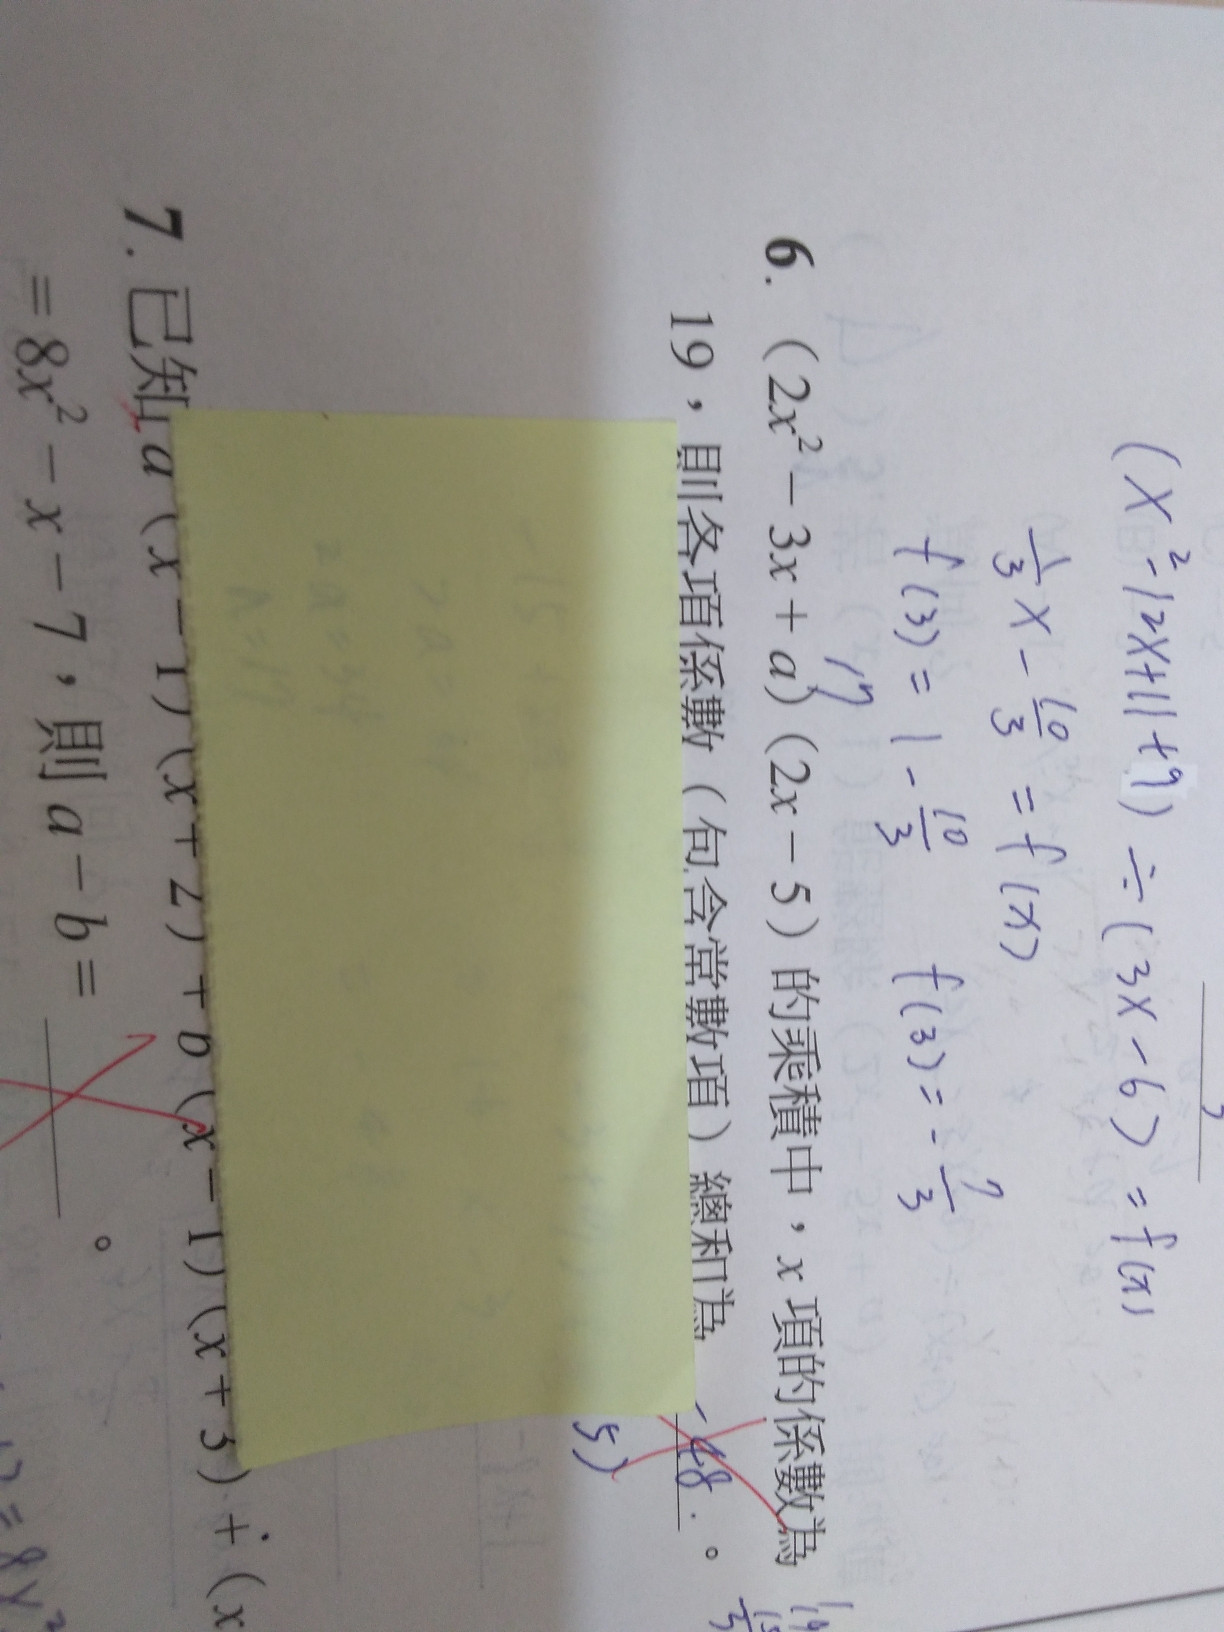 (x²-12x+11+9) ÷ (3x-6) = f(x)
1/3 x - 10/3 = f(x)
f(3) = 1 - 10/3 f(3) = - 7/3
17
6. (2x² - 3x + a)(2x - 5) 的乘積中，x 項的係數為
19，則各項係數（包含常數項）總和為 -48 。
5)
7. 已知 a (x - 1) (x + 2) + b (x - 1) (x + 3) + (x
= 8x² - x - 7，則 a - b = 。